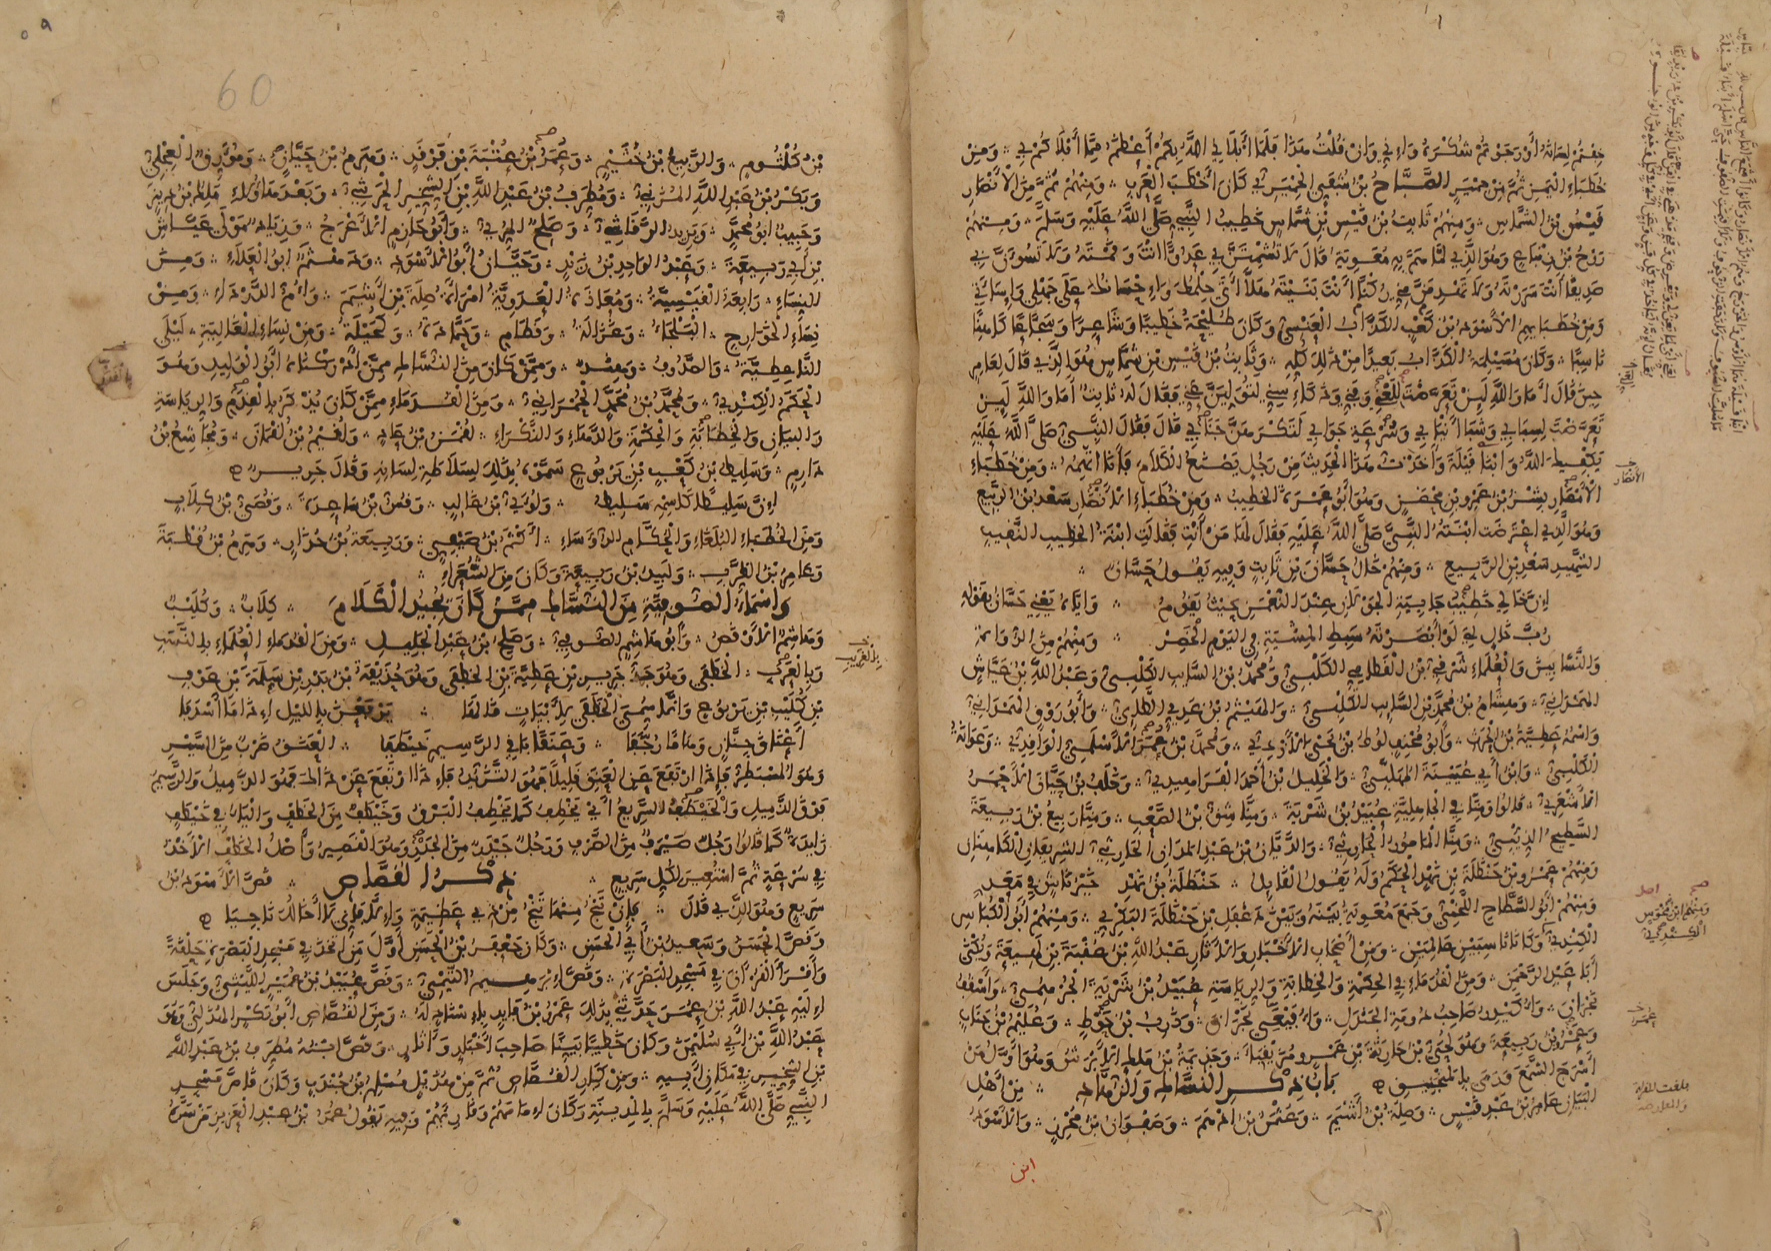 خفتم لسانه أو رجوتم شكره وإني وإن قلت هذا فلما أبلاني الله بكم أعظم مما أبلاكم بي ومن
خطباء اليمن ثم من حمير الصباح بن شفي الحميري كان أخطب العرب ومنهم ثم من الأنصار
قيس بن الشماس ومنهم ثابت بن قيس بن شماس خطيب النبي صلى الله عليه وسلم ومنهم
روح بن زنباع وهو الذي لما هم به معوية قال لا تشمتن بي عدوا أنت وقمته ولا تسوءن بي
صديقا أنت سررته ولا تهدمن مني ركنا أنت بنيته هلا أتى حلمك وإحسانك على جهلي وإساءتي
ومن خطبايهم الأسود بن كعب الكذاب العنسي وكان طليحة خطيبا وشاعرا وسجاعا كاهنا
ناسبا وكان مسيلمة الكذاب بعيدا من ذلك كله وثابت بن قيس بن شماس هو الذي قال لعامر
حين قال أما والله لين تعرضت لعني وفني وذكاء سني لتولين عني فقال له ثابت أما والله لين
تعرضت لسبابي وشبا أنيابي وسرعة جوابي لتكرهن جنابي قال فقال النبي صلى الله عليه
يكفيك الله وابنا قيلة وأخذت هذا الحديث من رجل يصنع الكلام فأنا أتهمه ومن خطباء
الأنصار بشر بن عمرو بن محصن وهو أبو عمرة الخطيب ومن خطباء الأنصار سعد بن الربيع
وهو الذي اعترضت ابنته النبي صلى الله عليه فقال لها من أنت فقالت ابنة الخطيب النقيب
الشهيد سعد بن الربيع ومنهم خال حسان بن ثابت وفيه يقول حسان
إن خالي خطيب جابية الجولان عند النعمن حيث يقوم وإياه يعني حسان بقوله
رب خال لي لو أبصرته سبط المشية في اليوم الخصر ومنهم من الرواة
والنسابين والعلماء شرقي بن القطامي الكلبي ومحمد بن السايب الكلبي وعبد الله بن عياش
الهمداني وهشام بن محمد بن السايب الكلبي والهيثم بن عدي الطائي وأبو روق الهمداني
واسمه عطية بن الحرث وأبو مخنف لوط بن يحيى الأزدي ومحمد بن عمر الأسلمي الواقدي وعوانة
الكلبي وابن أبي عيينة المهلبي والخليل بن أحمد الفراهيدي وخلف بن حيان الأحمر
الأشعري قالوا ومنا في الجاهلية عبيد بن شرية ومنا شق بن الصعب ومنا ربيع بن ربيعة
السطيح الذيبي ومنا المأمور الحارثي والديان بن عبد المدان الحارثي الشريفان الكاهنان
ومنهم عمرو بن حنظلة بن نهد الحكم وله يقول القايل حنظلة بن نهد خير ناش في معد
ومنهم أبو السطاح اللخمي وجمع معوية بينه وبين دغفل بن حنظلة البكري ومنهم أبو الكباس
الكندي وكانا ناسبين عالمين ومن أصحاب الأخبار والآثار عبد الله بن عقبة بن لهيعة ويكنى
أبا عبد الرحمن ومن القدماء في الحكمة والخطابة والرياسة عبيد بن شرية الجرهمي وأسقف
نجران وأكيدر صاحب دومة الجندل وأفيعى نجران وذرب بن حوط وعليم بن جناب
وعمرو بن ربيعة وهو لحي بن حارثة بن عمرو مزيقياء وجذيمة بن ملك الأبرش وهو أول من
أسرج الشمع ورمى بالمنجنيق باب ذكر النساك والزهاد من أهل
البيان عامر بن عبد قيس وصلة بن أشيم وعثمن بن أدهم وصفوان بن محرز والأسود
ابن
بن كلثوم والربيع بن خثيم وعمرو بن عتبة بن فرقد وهرم بن حيان ومورق العجلي
وبكر بن عبد الله المزني ومطرف بن عبد الله بن الشخير الحرشي وبعد هؤلاء ملك بن دينر
وحبيب أبو محمد ويزيد الرقاشي وصلح المري وأبو حازم الأعرج وزياد مولى عياش
بن أبي ربيعة وعبد الواحد بن زيد وحيان أبو الأسود ودهثم أبو العلاء ومن
النساء رابعة القيسية ومعاذة العدوية امرأة صلة بن أشيم وأم الدرداء ومن
نساء الخوارج البلجاء وغزالة وقطام وحمادة وكحيلة ومن نساء الغالية ليلى
الناعطية والصدوف وهند وممن كان من النساك ممن أدركناه أبو الوليد وهو
الحكم الكندي ومحمد بن محمد الحمراني ومن القدماء ممن كان يذكر بالقدر والرياسة
والبيان والخطابة والحكمة والدهاء والنكراء لقمن بن عاد ولقيم بن لقمان ومجاشع بن
دارم وسليط بن كعب بن يربوع سموه بذلك لسلاطة لسانه وقال جرير
إن سليطا كاسمه سليط ولؤي بن غالب وقس بن ساعدة وقصي بن كلاب
ومن الخطباء البلغاء والحكام الرؤساء أكثم بن صيفي وربيعة بن حذار وهرم بن قطبة
وعامر بن الظرب ولبيد بن ربيعة وكان من الشعراء
وأسماء الصوفية من النساك ممن كان يجيد الكلام كلاب وكليب
وهاشم الأوقص وأبو هاشم الصوفي وصلح بن عبد الجليل ومن القدماء العلماء بالنسب
وبالعرب الخطفى وهو جد جرير بن عطية بن الخطفى وهو حذيفة بن بدر بن سلمة بن عوف
بن كليب بن يربوع وإنما سمي الخطفى لأبيات قالها يرفعن بالليل إذا ما أسدفا
أعناق جنان وهاما رجفا وعنقا باقي الرسيم خيطفا العنق ضرب من السير
وهو المسبطر فإذا ارتفع عن العنق قليلا فهو التزيد فإذا ارتفع عن ذلك فهو الذميل والرسيم
فوق الذميل والخيطف السريع أي يخطف كما يخطف البرق وخيطف من الخطف والياء في خيطف
زايدة كما قالوا رجل صيرف من الصرف ورجل جيدر من الجدر وهو القصير وأصل الخطف الأخذ
في سرعة ثم استعير لكل سريع ذكر القصاص قص الأسود بن
سريع وهو الذي قال فإن تنج منها تنج من ذي عظيمة وإلا فإني لا أخالك ناجيا
وقص الحسن وسعيد بن أبي الحسن وكان جعفر بن الحسن أول من اتخذ في مسجد البصرة حلقة
وأقرأ القرآن في مسجد البصرة وقص إبرهيم التيمي وقص عبيد بن عمير الليثي وجلس
إليه عبد الله بن عمر حدثني بذلك عمرو بن فايد بإسناد له ومن القصاص أبو بكر الهذلي وهو
عبد الله بن أبي سليمن وكان خطيبا بينا صاحب أخبار وآثار وقص ابنه مطرف بن عبد الله
بن الشخير في مكان أبيه ومن كبار القصاص ثم من هذيل مسلم بن جندب وكان قاص مسجد
النبي صلى الله عليه وسلم بالمدينة وكان إمامهم وقاريهم وفيه يقول عمر بن عبد العزيز من سره
60